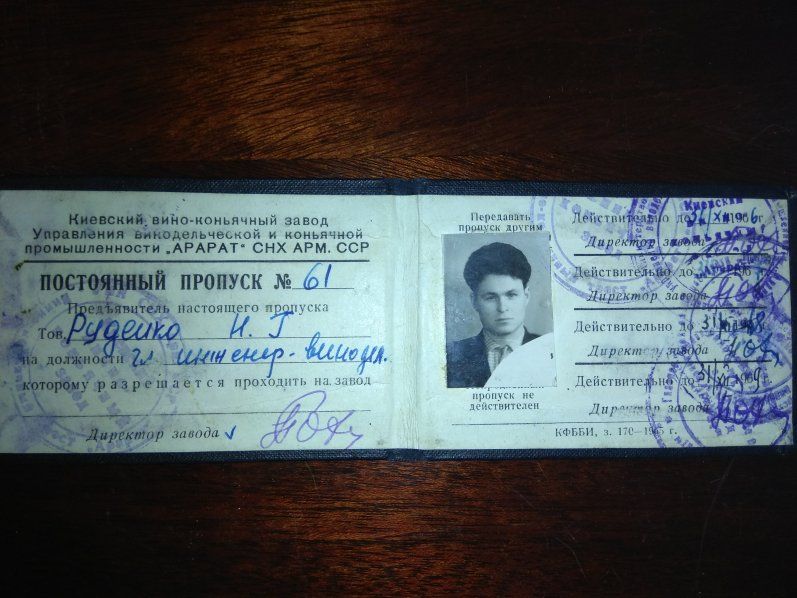 Киевский вино-коньячный завод
Управления винодельческой и коньячной
промышленности „АРАРАТ“ СНХ АРМ. ССР
ПОСТОЯННЫЙ ПРОПУСК № 61
Предъявитель настоящего пропуска
Тов. Руденко Н. Г
на должности гл. инженер-винодел.
которому разрешается проходить на завод
Директор завода
Передавать
пропуск другим
пропуск не
действителен
Действительно до 31/XII 1966 г
Директор завода
Действительно до 196 г.
Директор завода
Действительно до 31/XII 1968
Директор завода
Действительно до 31/XII 1969.
Директор завода
КФББИ, з. 170—1965 г.